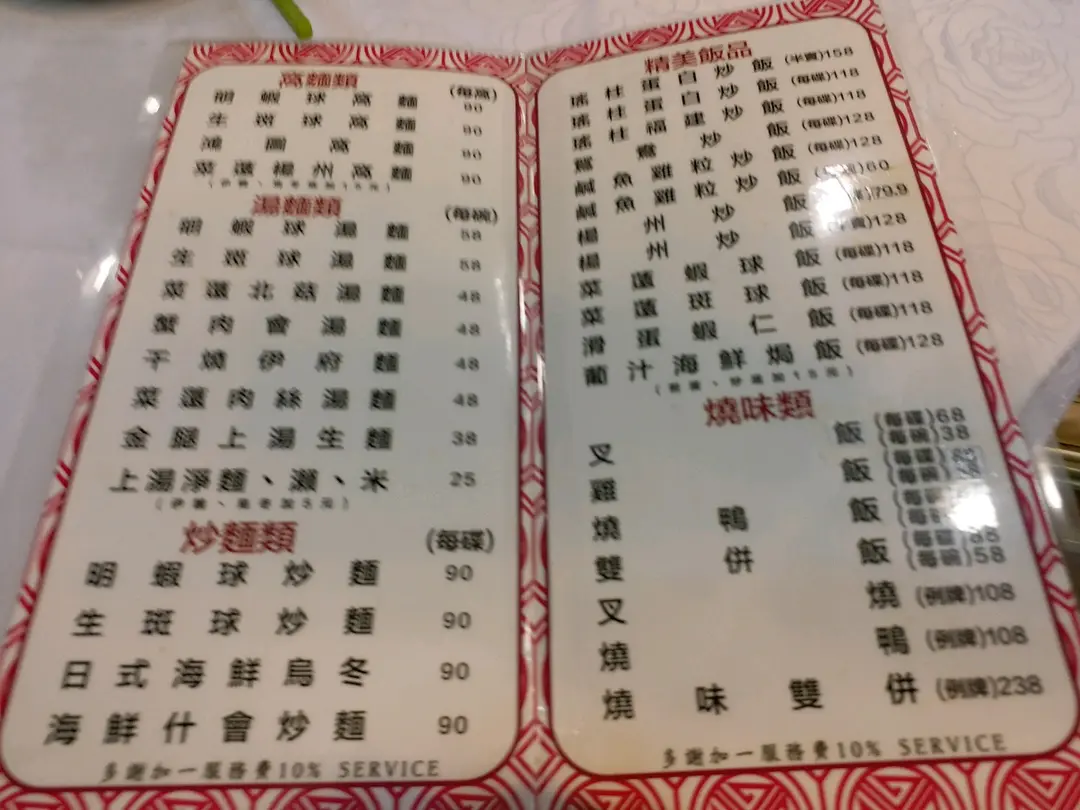 窩麵類 (每窩)
明蝦球窩麵 90
生斑球窩麵 90
鴻圖窩麵 90
菜薳楊州窩麵 90
湯麵類 (每碗)
明蝦球湯麵 58
生斑球湯麵 58
菜薳北菇湯麵 48
蟹肉會湯麵 48
干燒伊府麵 48
菜薳肉絲湯麵 48
金腿上湯生麵 38
上湯淨麵、瀨、米 25
炒麵類 (每碟)
明蝦球炒麵 90
生斑球炒麵 90
日式海鮮烏冬 90
海鮮什會炒麵 90
多謝加一服務費10% SERVICE
精美飯品
瑤柱蛋白炒飯 (半賣)158
瑤柱蛋白炒飯 (每碟)118
瑤柱福建炒飯 (每碟)118
鴛鴦炒飯 (每碟)128
鹹魚雞粒炒飯 (每碟)128
鹹魚雞粒炒飯 60
楊州炒飯 79.9
楊州炒飯 (半賣)128
菜薳蝦球飯 (每碟)118
菜薳斑球飯 (每碟)118
滑蛋蝦仁飯 (每碟)118
葡汁海鮮焗飯 (每碟)128
燒味類
叉飯 (每碟)68 (每碗)38
雞飯 (每碟) (每碗)
燒鴨飯 (每碟) (每碗)
雙併飯 (每碟)88 (每碗)58
叉燒 (例牌)108
燒鴨 (例牌)108
燒味雙併 (例牌)238
多謝加一服務費10% SERVICE